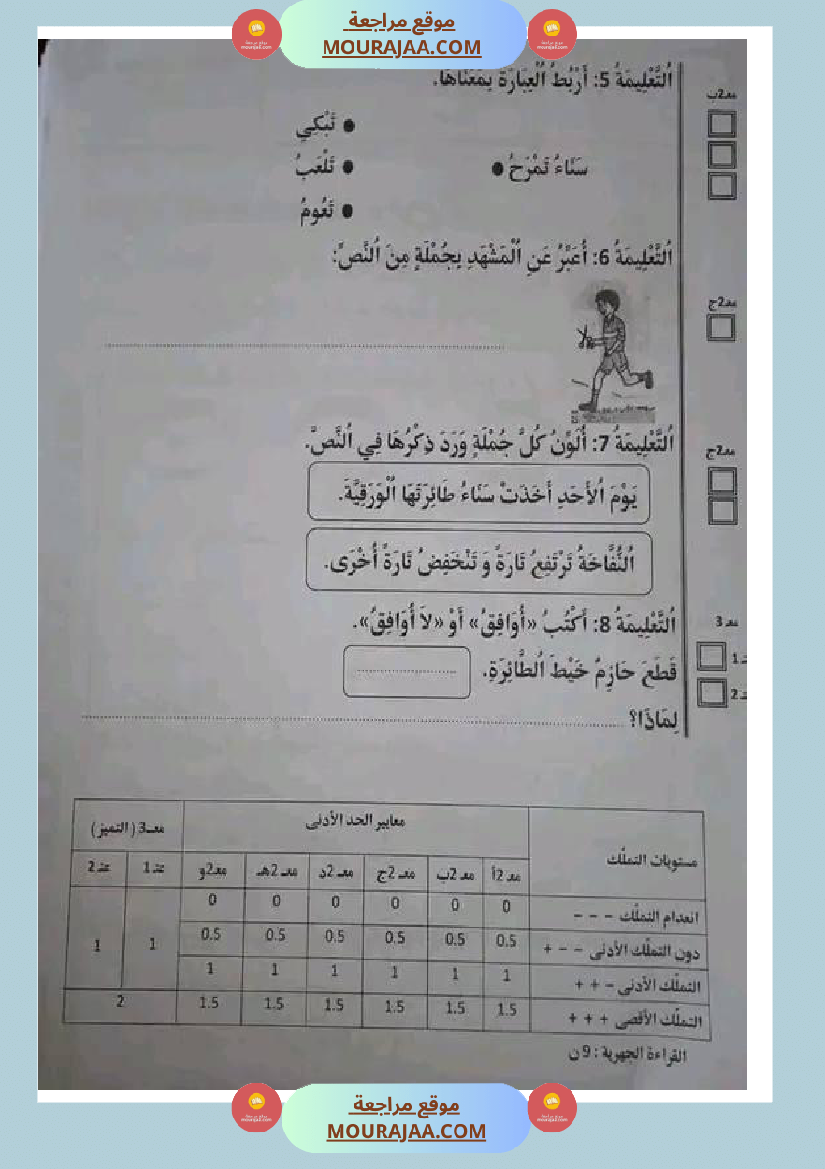 موقع مراجعة
MOURAJAA.COM
اَلتَّعْلِيمَةُ 5: أَرْبُطُ اُلْعِبَارَةَ بِمَعْنَاهَا.
معـ2ب
● تَبْكِي
سَنَاءُ تَمْرَحُ ●
● تَلْعَبُ
● تَعُومُ
اَلتَّعْلِيمَةُ 6: أُعَبِّرُ عَنِ اُلْمَشْهَدِ بِجُمْلَةٍ مِنَ اُلنَّصِّ:
معـ2ج
اَلتَّعْلِيمَةُ 7: أُلَوِّنُ كُلَّ جُمْلَةٍ وَرَدَ ذِكْرُهَا فِي اُلنَّصِّ.
معـ2ج
يَوْمَ اُلأَحَدِ أَخَذَتْ سَنَاءُ طَائِرَتَهَا اُلْوَرَقِيَّةَ.
اَلنُّفَّاخَةُ تَرْتَفِعُ تَارَةً وَ تَنْخَفِضُ تَارَةً أُخْرَى.
اَلتَّعْلِيمَةُ 8: أَكْتُبُ «أُوَافِقُ» أَوْ «لاَ أُوَافِقُ».
معـ 3
قَطَعَ حَازِمُ خَيْطَ اُلطَّائِرَةِ. ....................
عـ1
لِمَاذَا؟ ....................
عـ2
مستويات التملّك
معايير الحد الأدنى
معـ3 ( التميز )
معـ 2أ معـ 2ب معـ 2ج معـ 2د معـ 2هـ معـ2و عـ1 عـ2
انعدام التملّك – – – 0 0 0 0 0 0
دون التملّك الأدنى – – + 0.5 0.5 0.5 0.5 0.5 0.5 1 1
التملّك الأدنى – + + 1 1 1 1 1 1
التملّك الأقصى + + + 1.5 1.5 1.5 1.5 1.5 1.5 2
القراءة الجهرية : 9 ن
موقع مراجعة
MOURAJAA.COM